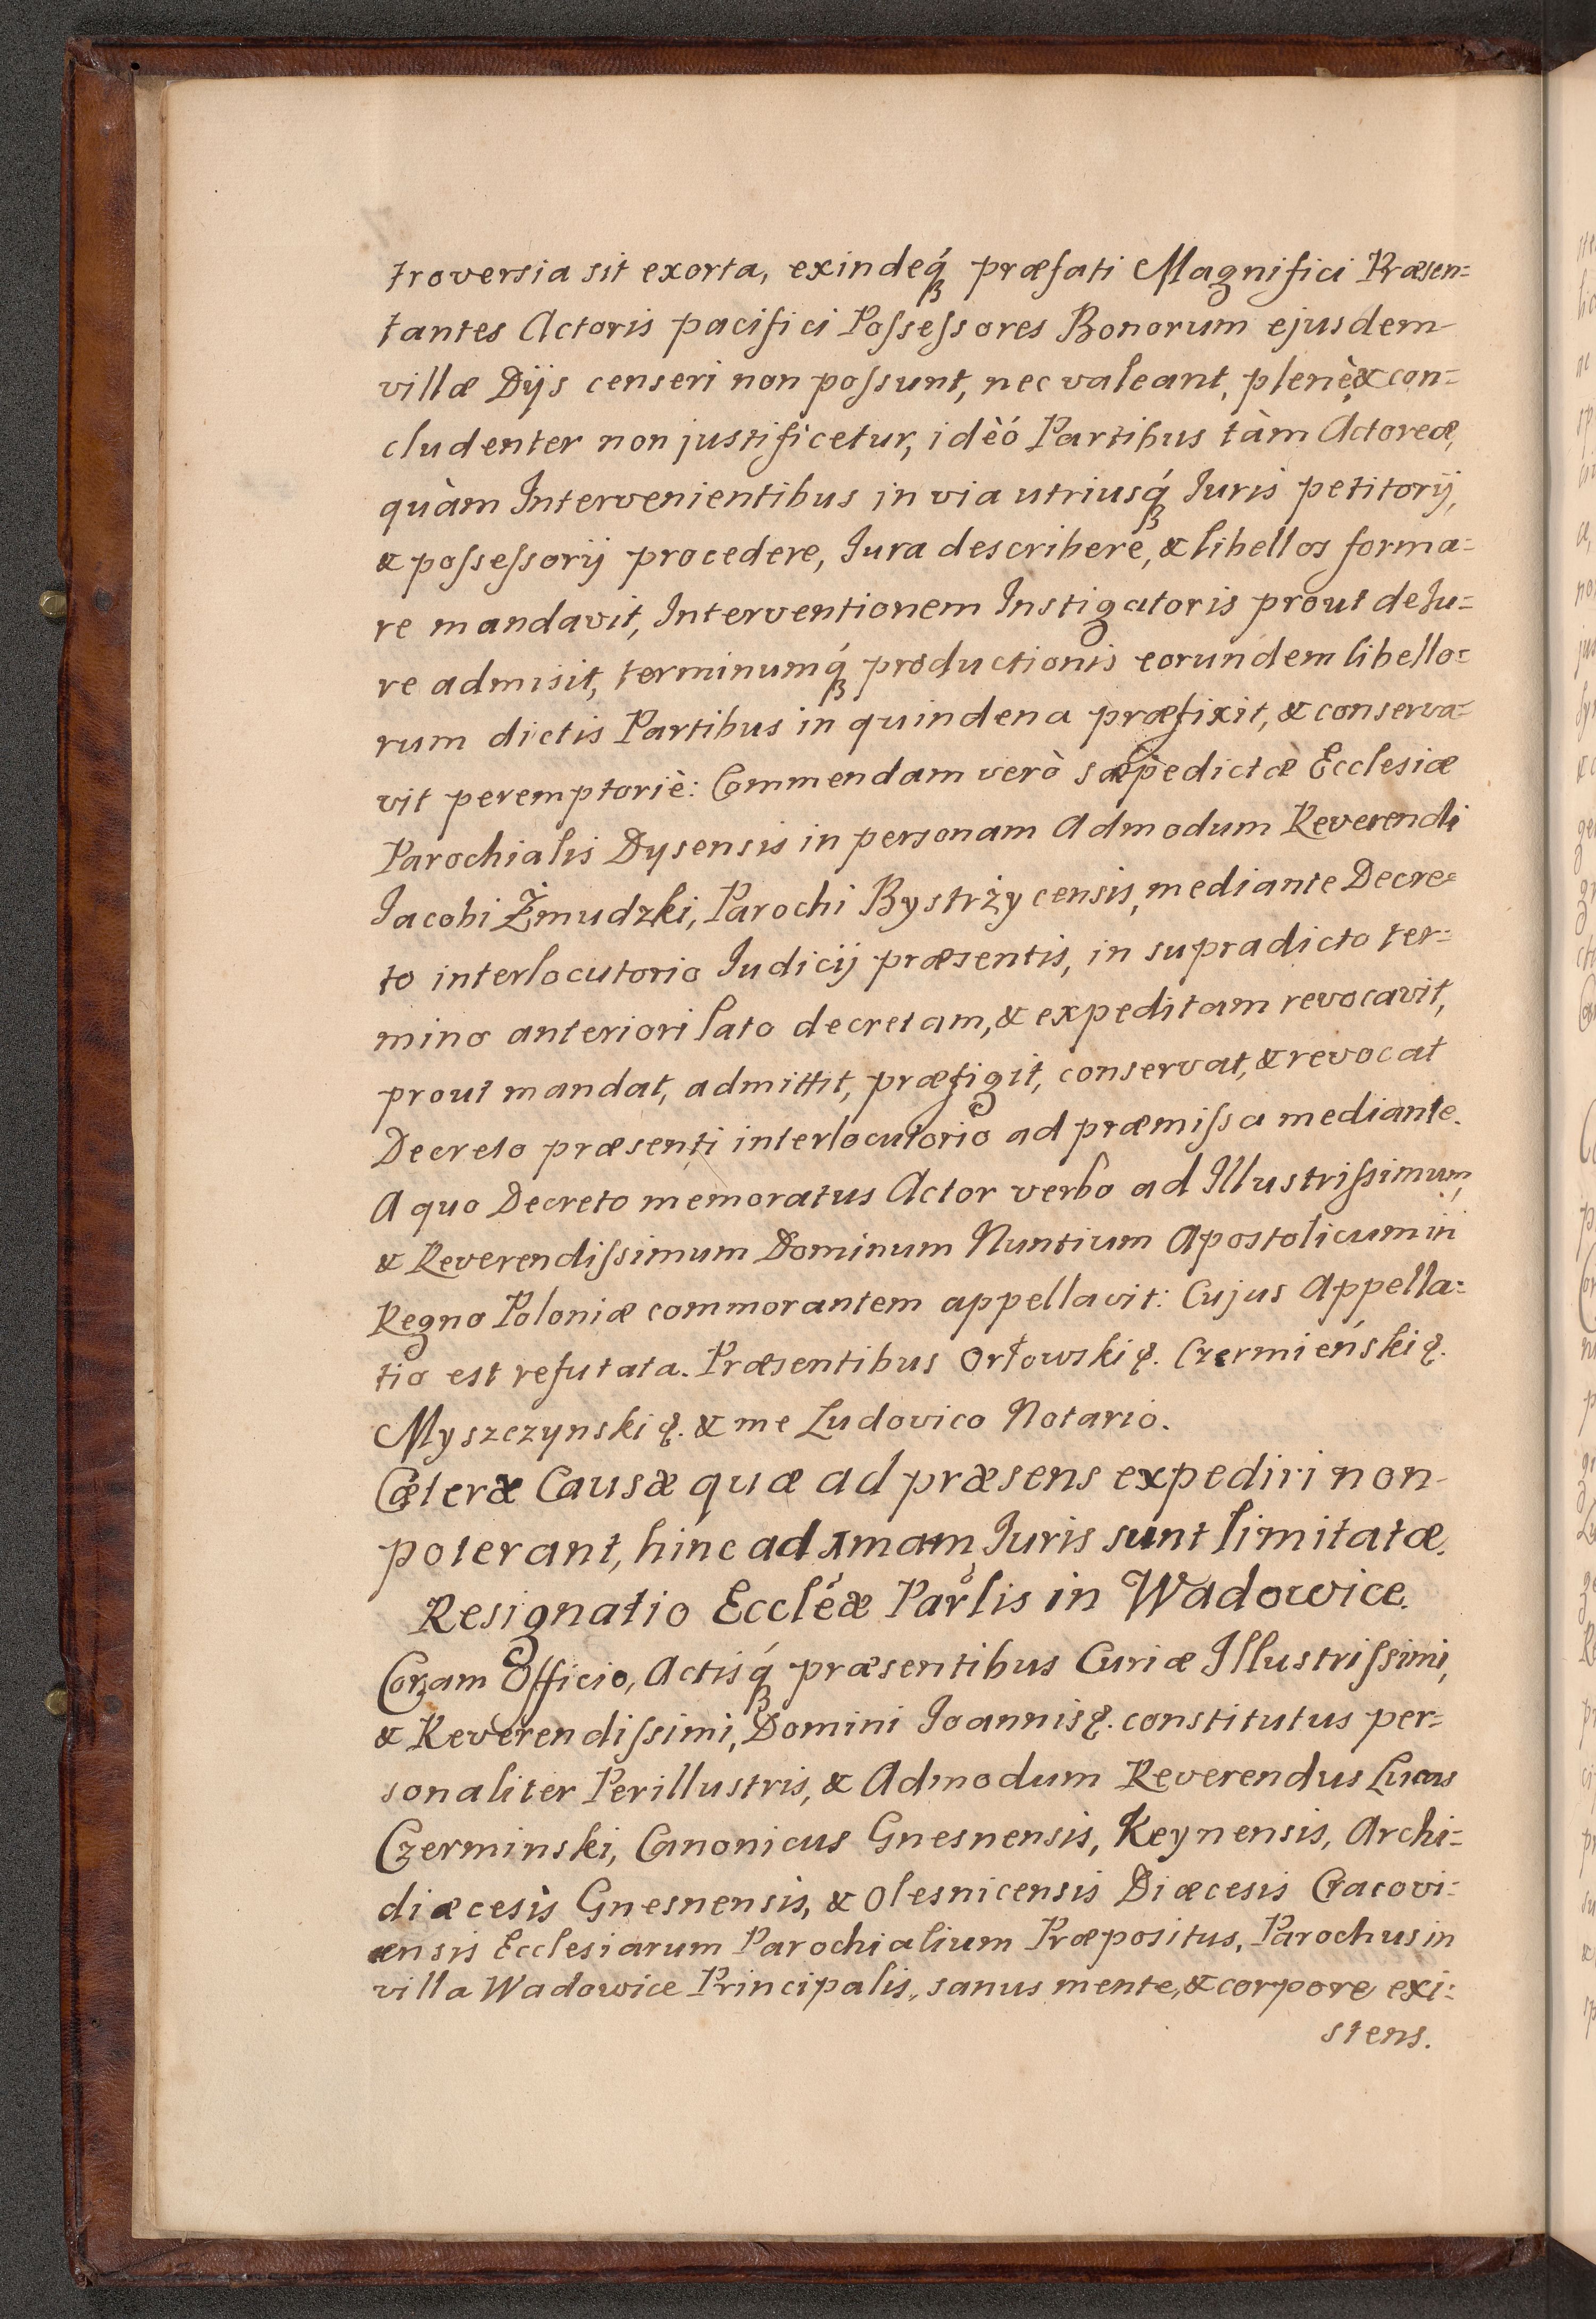 troversia sit exorta, exindeq́ꝫ præfati Magnifici Præsen=
tantes Actoris pacifici Poſseſsores Bonorum ejusdem
villæ Dijs censeri non poſsunt, nec valeant, plenè, & con=
cludenter non justificetur, idèó Partibus tàm Actoreæ,
quàm Intervenientibus in via utriusq́ꝫ Iuris petitorij,
& poſseſsorij procedere, Iura describere, & libellos forma=
re mandavit, Interventionem Instigatoris prout de Iu=
re admisit, terminumq́ꝫ productionis eorundem libello=
rum dictis Partibus in quindena præfixit, & conserva=
vit peremptoriè: Commendam verò sæpèdictæ Ecclesiæ
Parochialis Dysensis in personam Admodum Reverendi
Iacobi Żmudzki, Parochi Bystrżycensis, mediante Decre=
to interlocutorio Iudicij præsentis, in supradicto ter=
mino anteriori lato decretam, & expeditam revocavit,
prout mandat, admittit, præfigit, conservat, & revocat
Decreto præsenti interlocutorio ad præmiſsa mediante.
A quo Decreto memoratus Actor verbo ad Illustriſsimum,
& Reverendiſsimum Dominum Nuntium Apostolicum in
Regno Poloniæ commorantem appellavit: Cujus Appella=
tio est refutata. Præsentibus Orłowski &. Czermieński &.
Myszczynski &. & me Ludovico Notario.
Cæteræ Causæ quæ ad præsens expediri non
poterant, hinc ad 1mam Iuris sunt limitatæ.
Resignatio Eccléæ Parlis in Wadowice.
Coram Officio, Actisq́ꝫ præsentibus Curiæ Illustriſsimi,
& Reverendiſsimi, Domini Ioannis &. constitutus per=
sonaliter Perillustris, & Admodum Reverendus Lucas
Czerminski, Canonicus Gnesnensis, Keynensis, Archi=
diæcesis Gnesnensis, & Olesnicensis Diæcesis Cracovi=
ensis Ecclesiarum Parochialium Præpositus, Parochus in
villa Wadowice Principalis, sanus mente, & corpore exi=
stens.